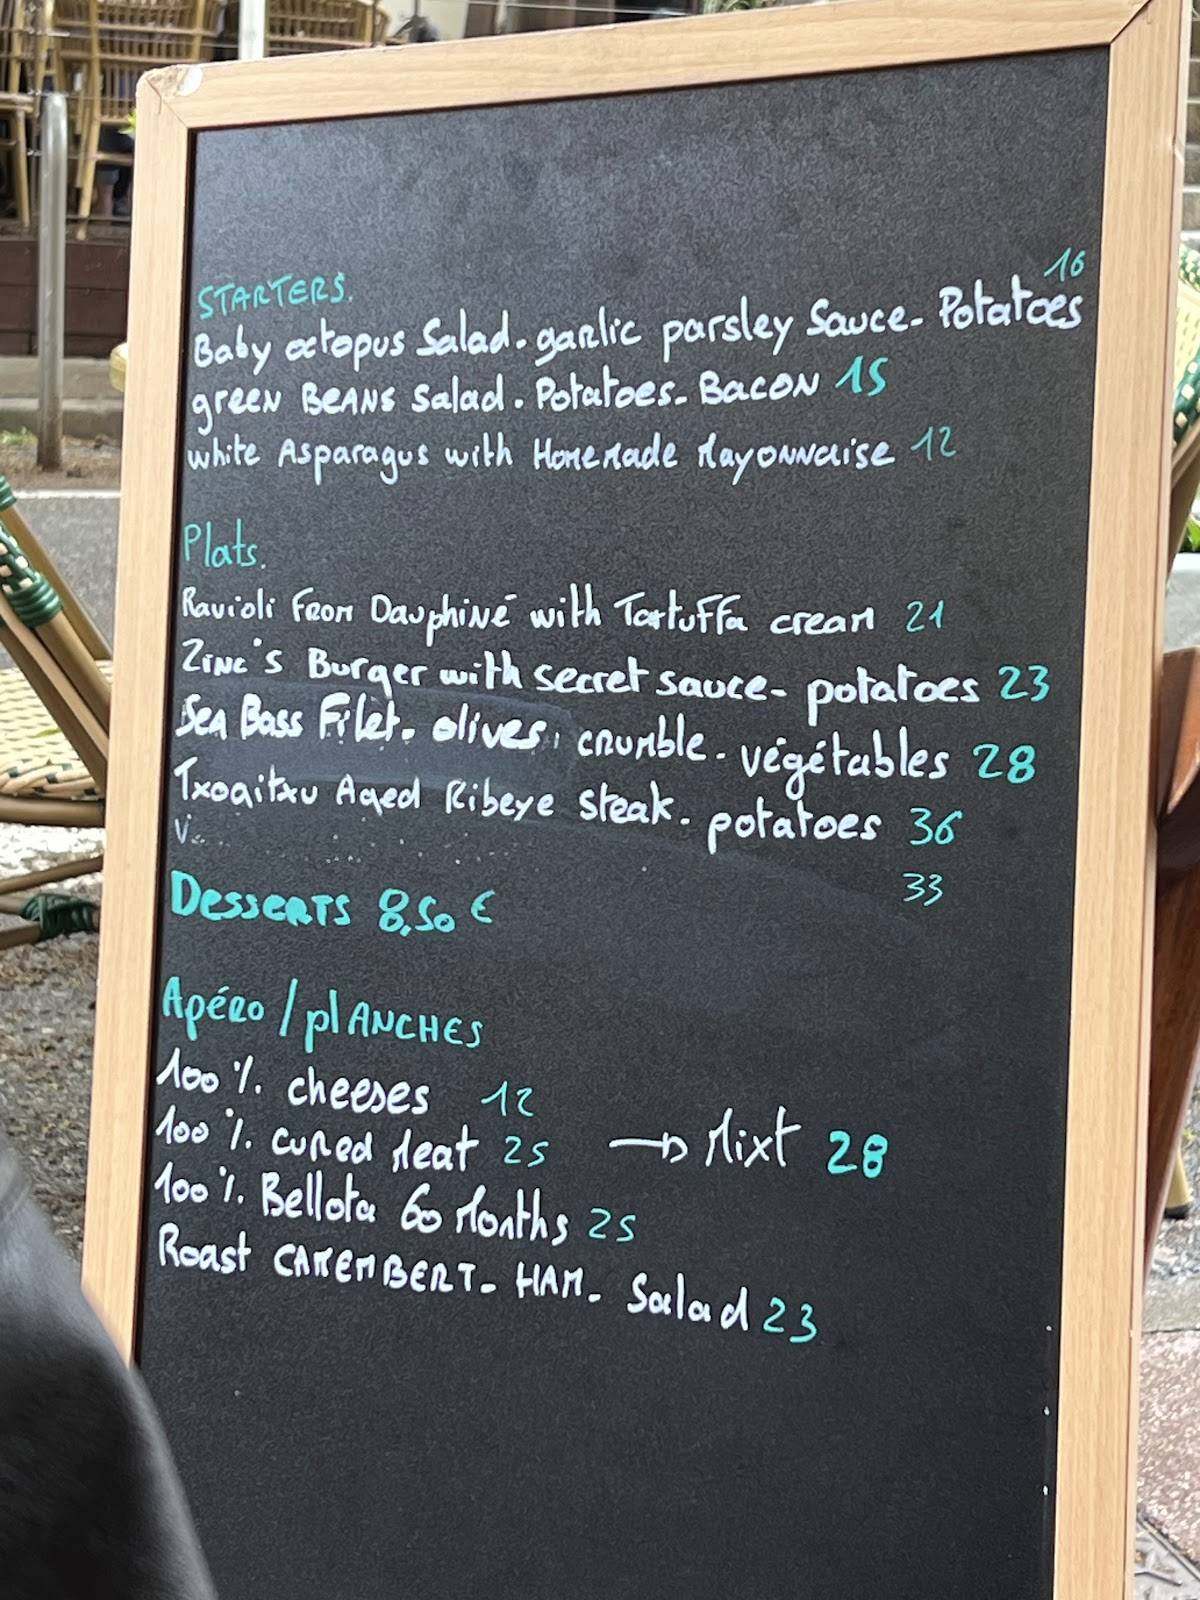 STARTERS.
16
Baby octopus Salad. garlic parsley Sauce - Potatoes
green BEANS Salad. Potatoes - BACON 15
white Asparagus with Homemade Mayonnaise 12
Plats.
Ravioli From Dauphiné with TartuFFa cream 21
Zinc's Burger with secret sauce - potatoes 23
Sea Bass Filet. olives, crumble - végétables 28
Txogitxu Aged Ribeye steak - potatoes 36
33
Desserts 8,50 €
Apéro / plANCHES
100 % cheeses 12
100 % cured Meat 25 → Mixt 28
100 % Bellota 60 Months 25
Roast CAMEMBERT - HAM - Salad 23